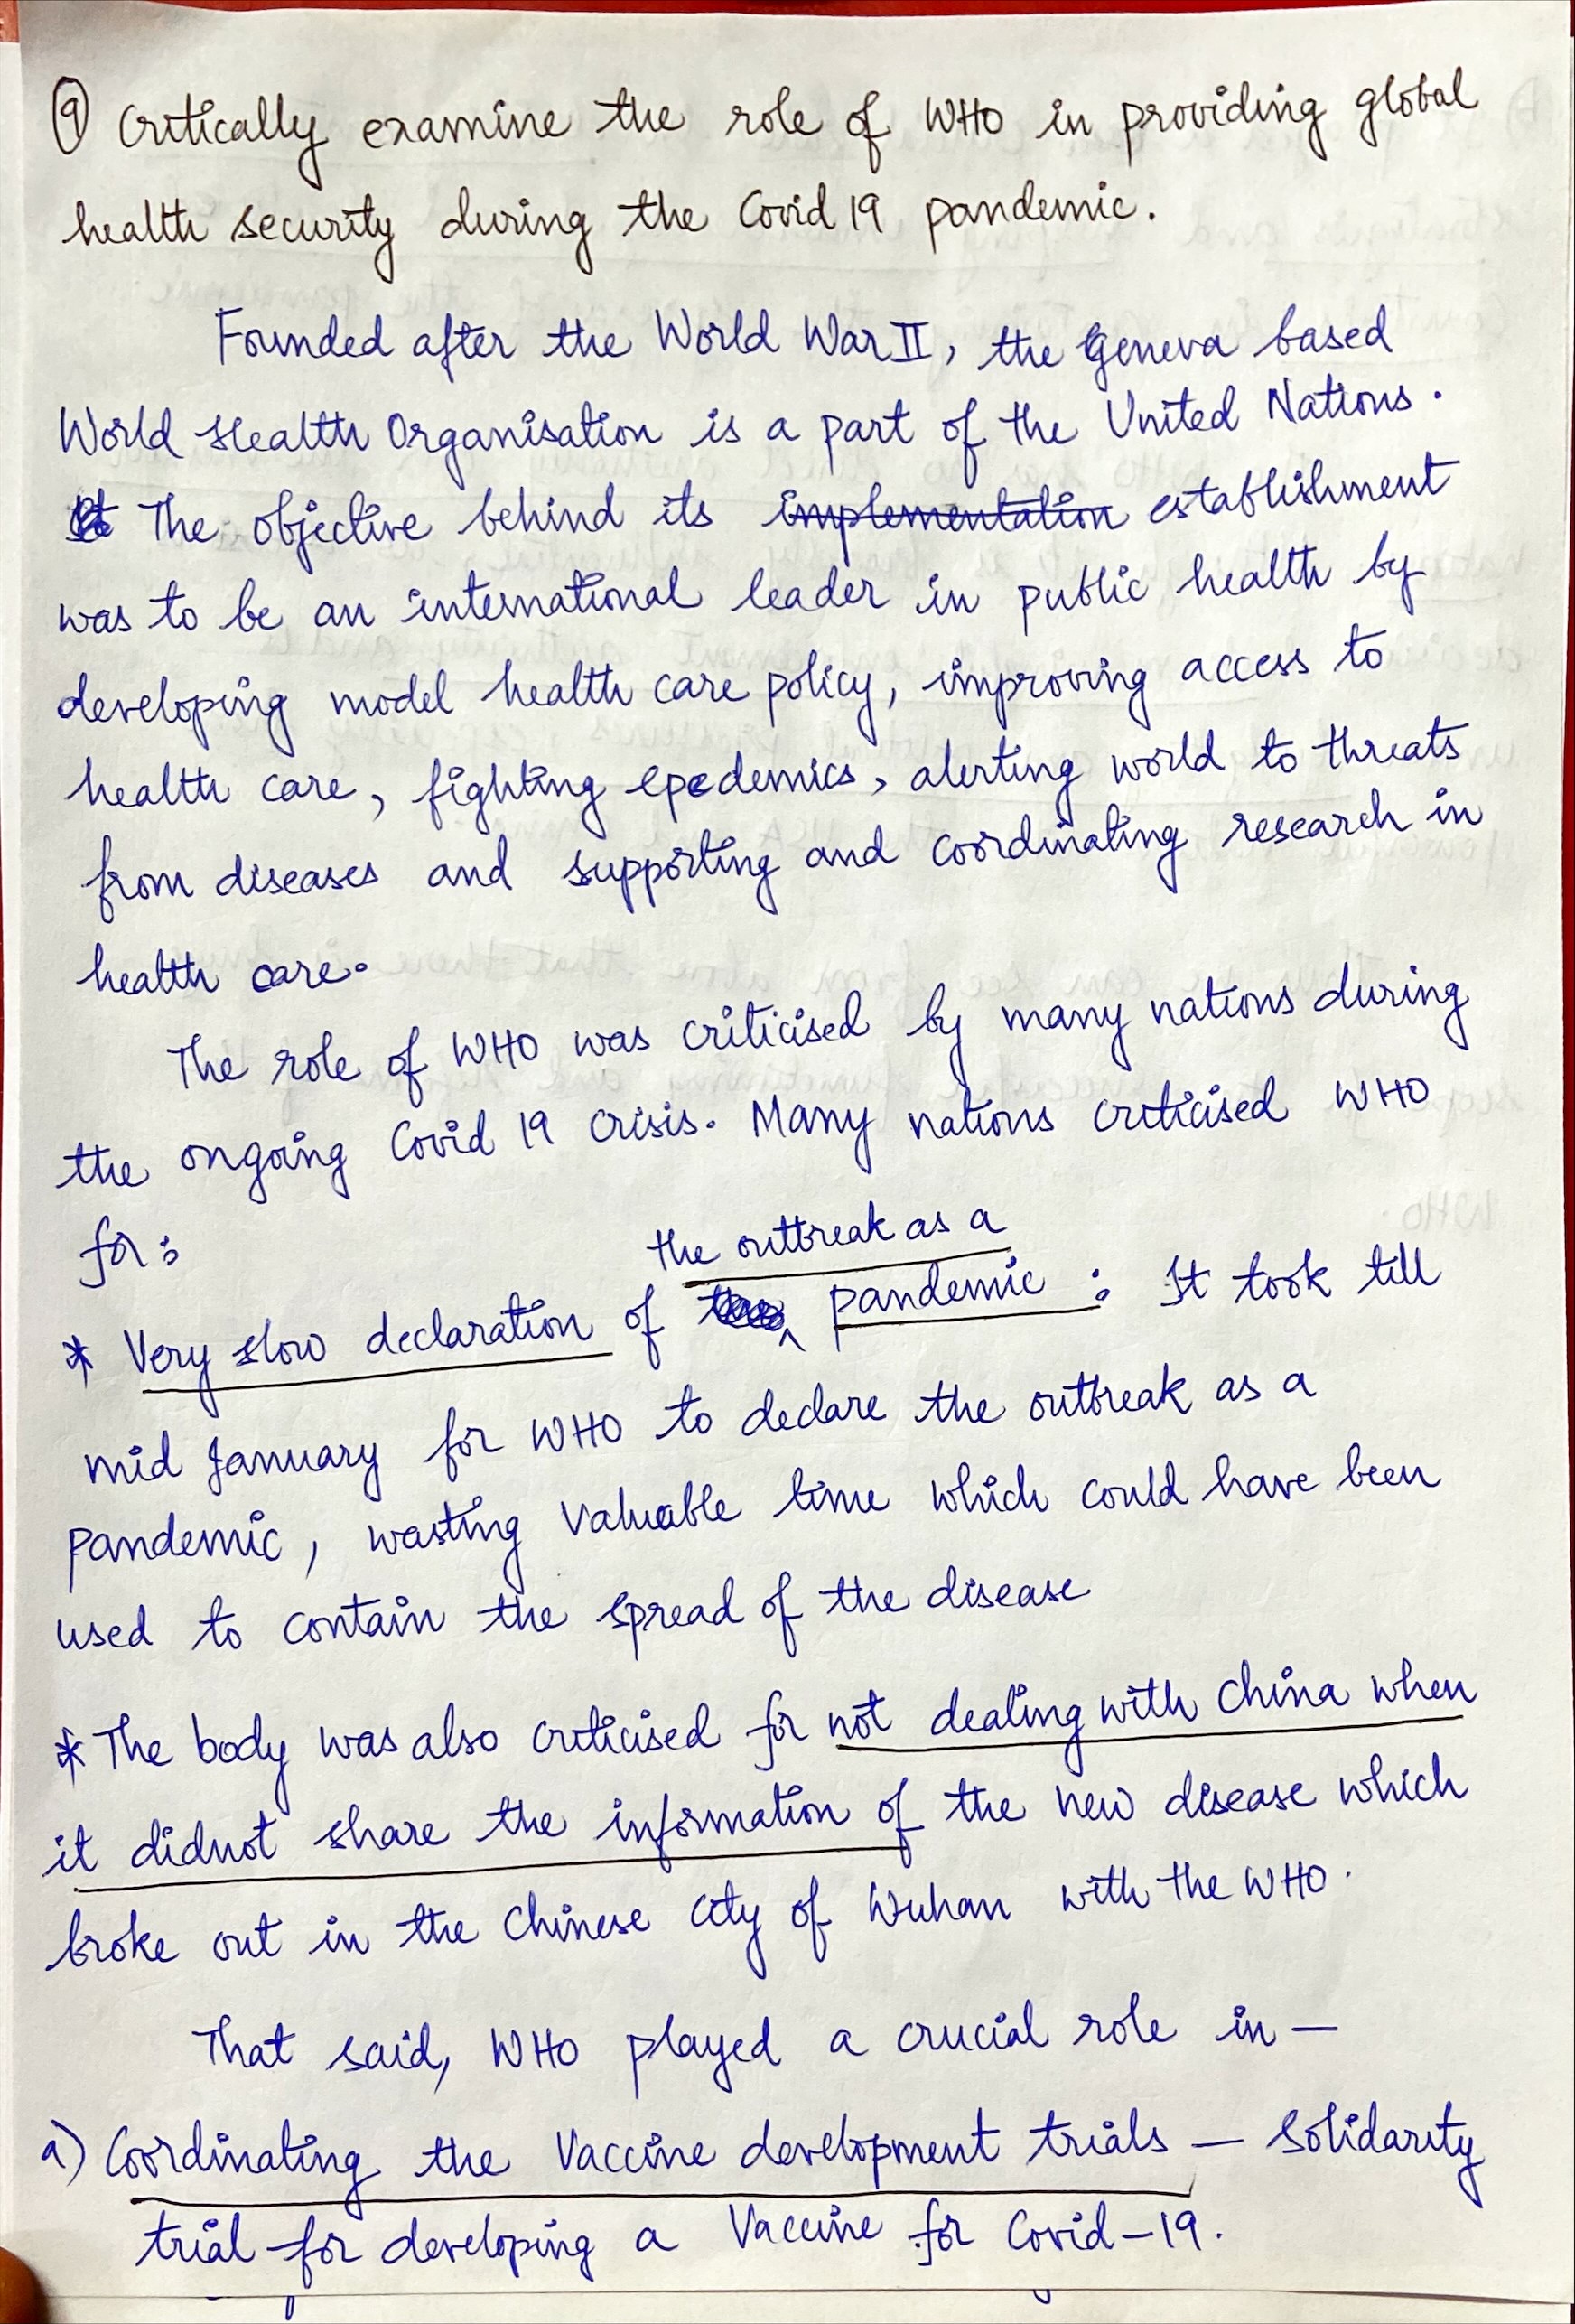 9 Critically examine the role of WHO in providing global
health security during the Covid 19 pandemic.
Founded after the World War II, the Geneva based
World Health Organisation is a part of the United Nations.
The objective behind its implementation establishment
was to be an international leader in public health by
developing model health care policy, improving access to
health care, fighting epedemics, alerting world to threats
from diseases and supporting and coordinating research in
health care.
The role of WHO was criticised by many nations during
the ongoing Covid 19 crisis. Many nations criticised WHO
for:
the outbreak as a
* Very slow declaration of ^ pandemic : It took till
mid January for WHO to declare the outbreak as a
pandemic, wasting valuable time which could have been
used to contain the spread of the disease
* The body was also criticised for not dealing with China when
it didnot share the information of the new disease which
broke out in the Chinese city of Wuhan with the WHO.
That said, WHO played a crucial role in —
a) Coordinating the Vaccine development trials — Solidarity
trial for developing a Vaccine for Covid-19.